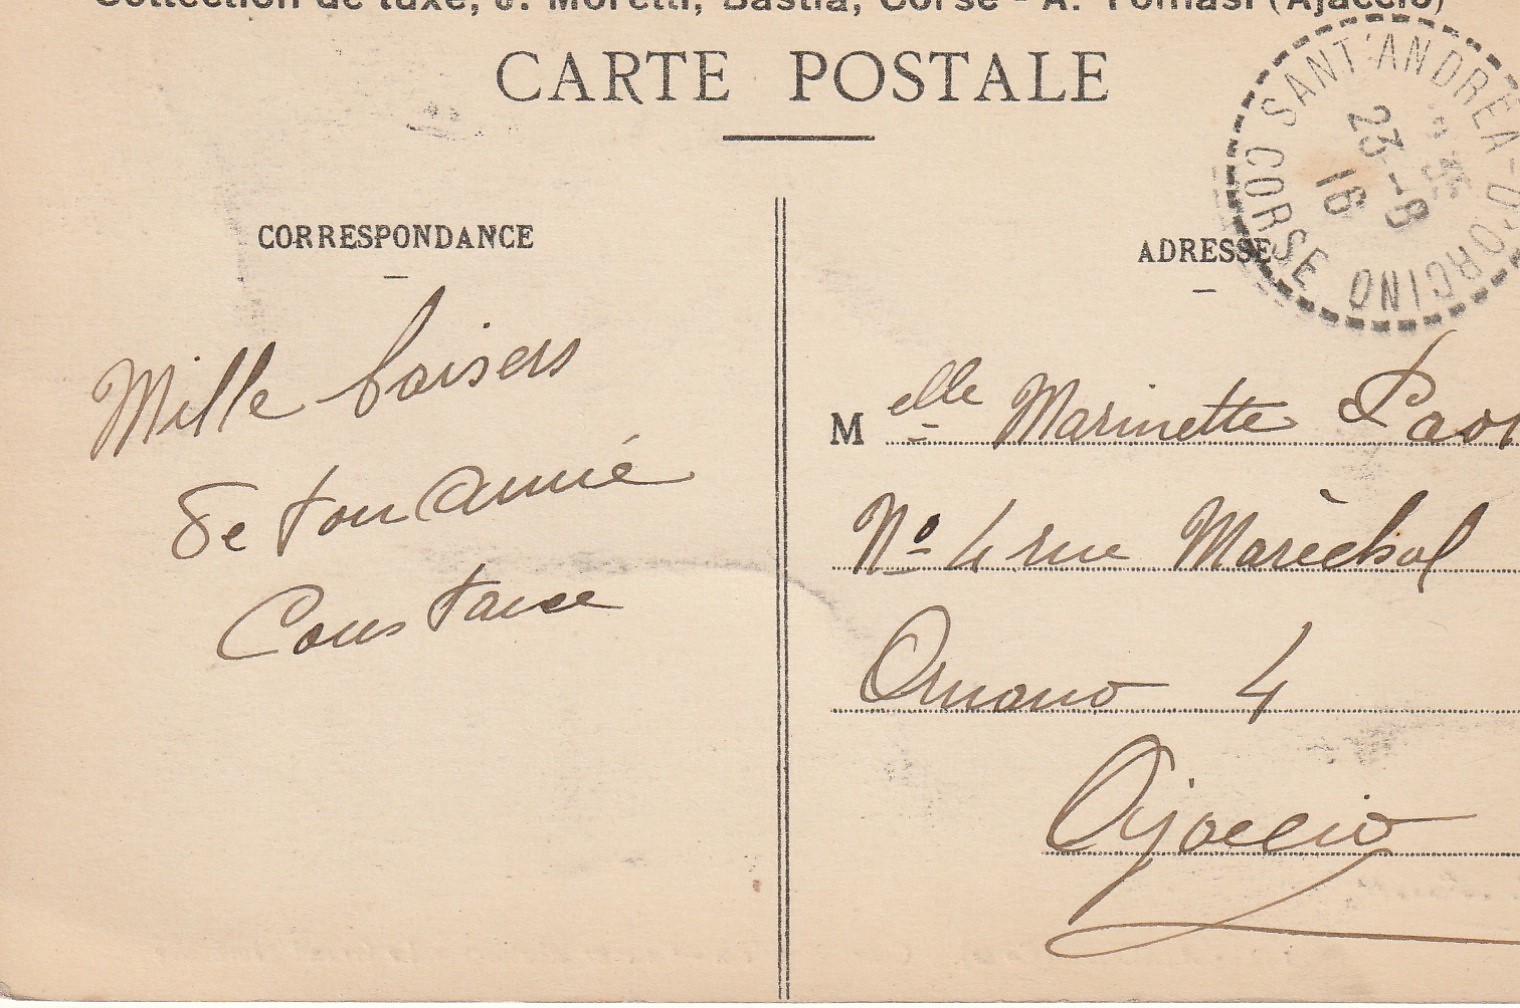 Collection de luxe, J. Moretti, Bastia, Corse - A. Tomasi (Ajaccio)
CARTE POSTALE
SANT'ANDREA-D'ORCINO
23 -8
16
CORSE
CORRESPONDANCE
ADRESSE
Mille baisers
de ton amie
Constance
Melle Marinette
No 4 rue Maréchal
Ornano 4
Ajaccio